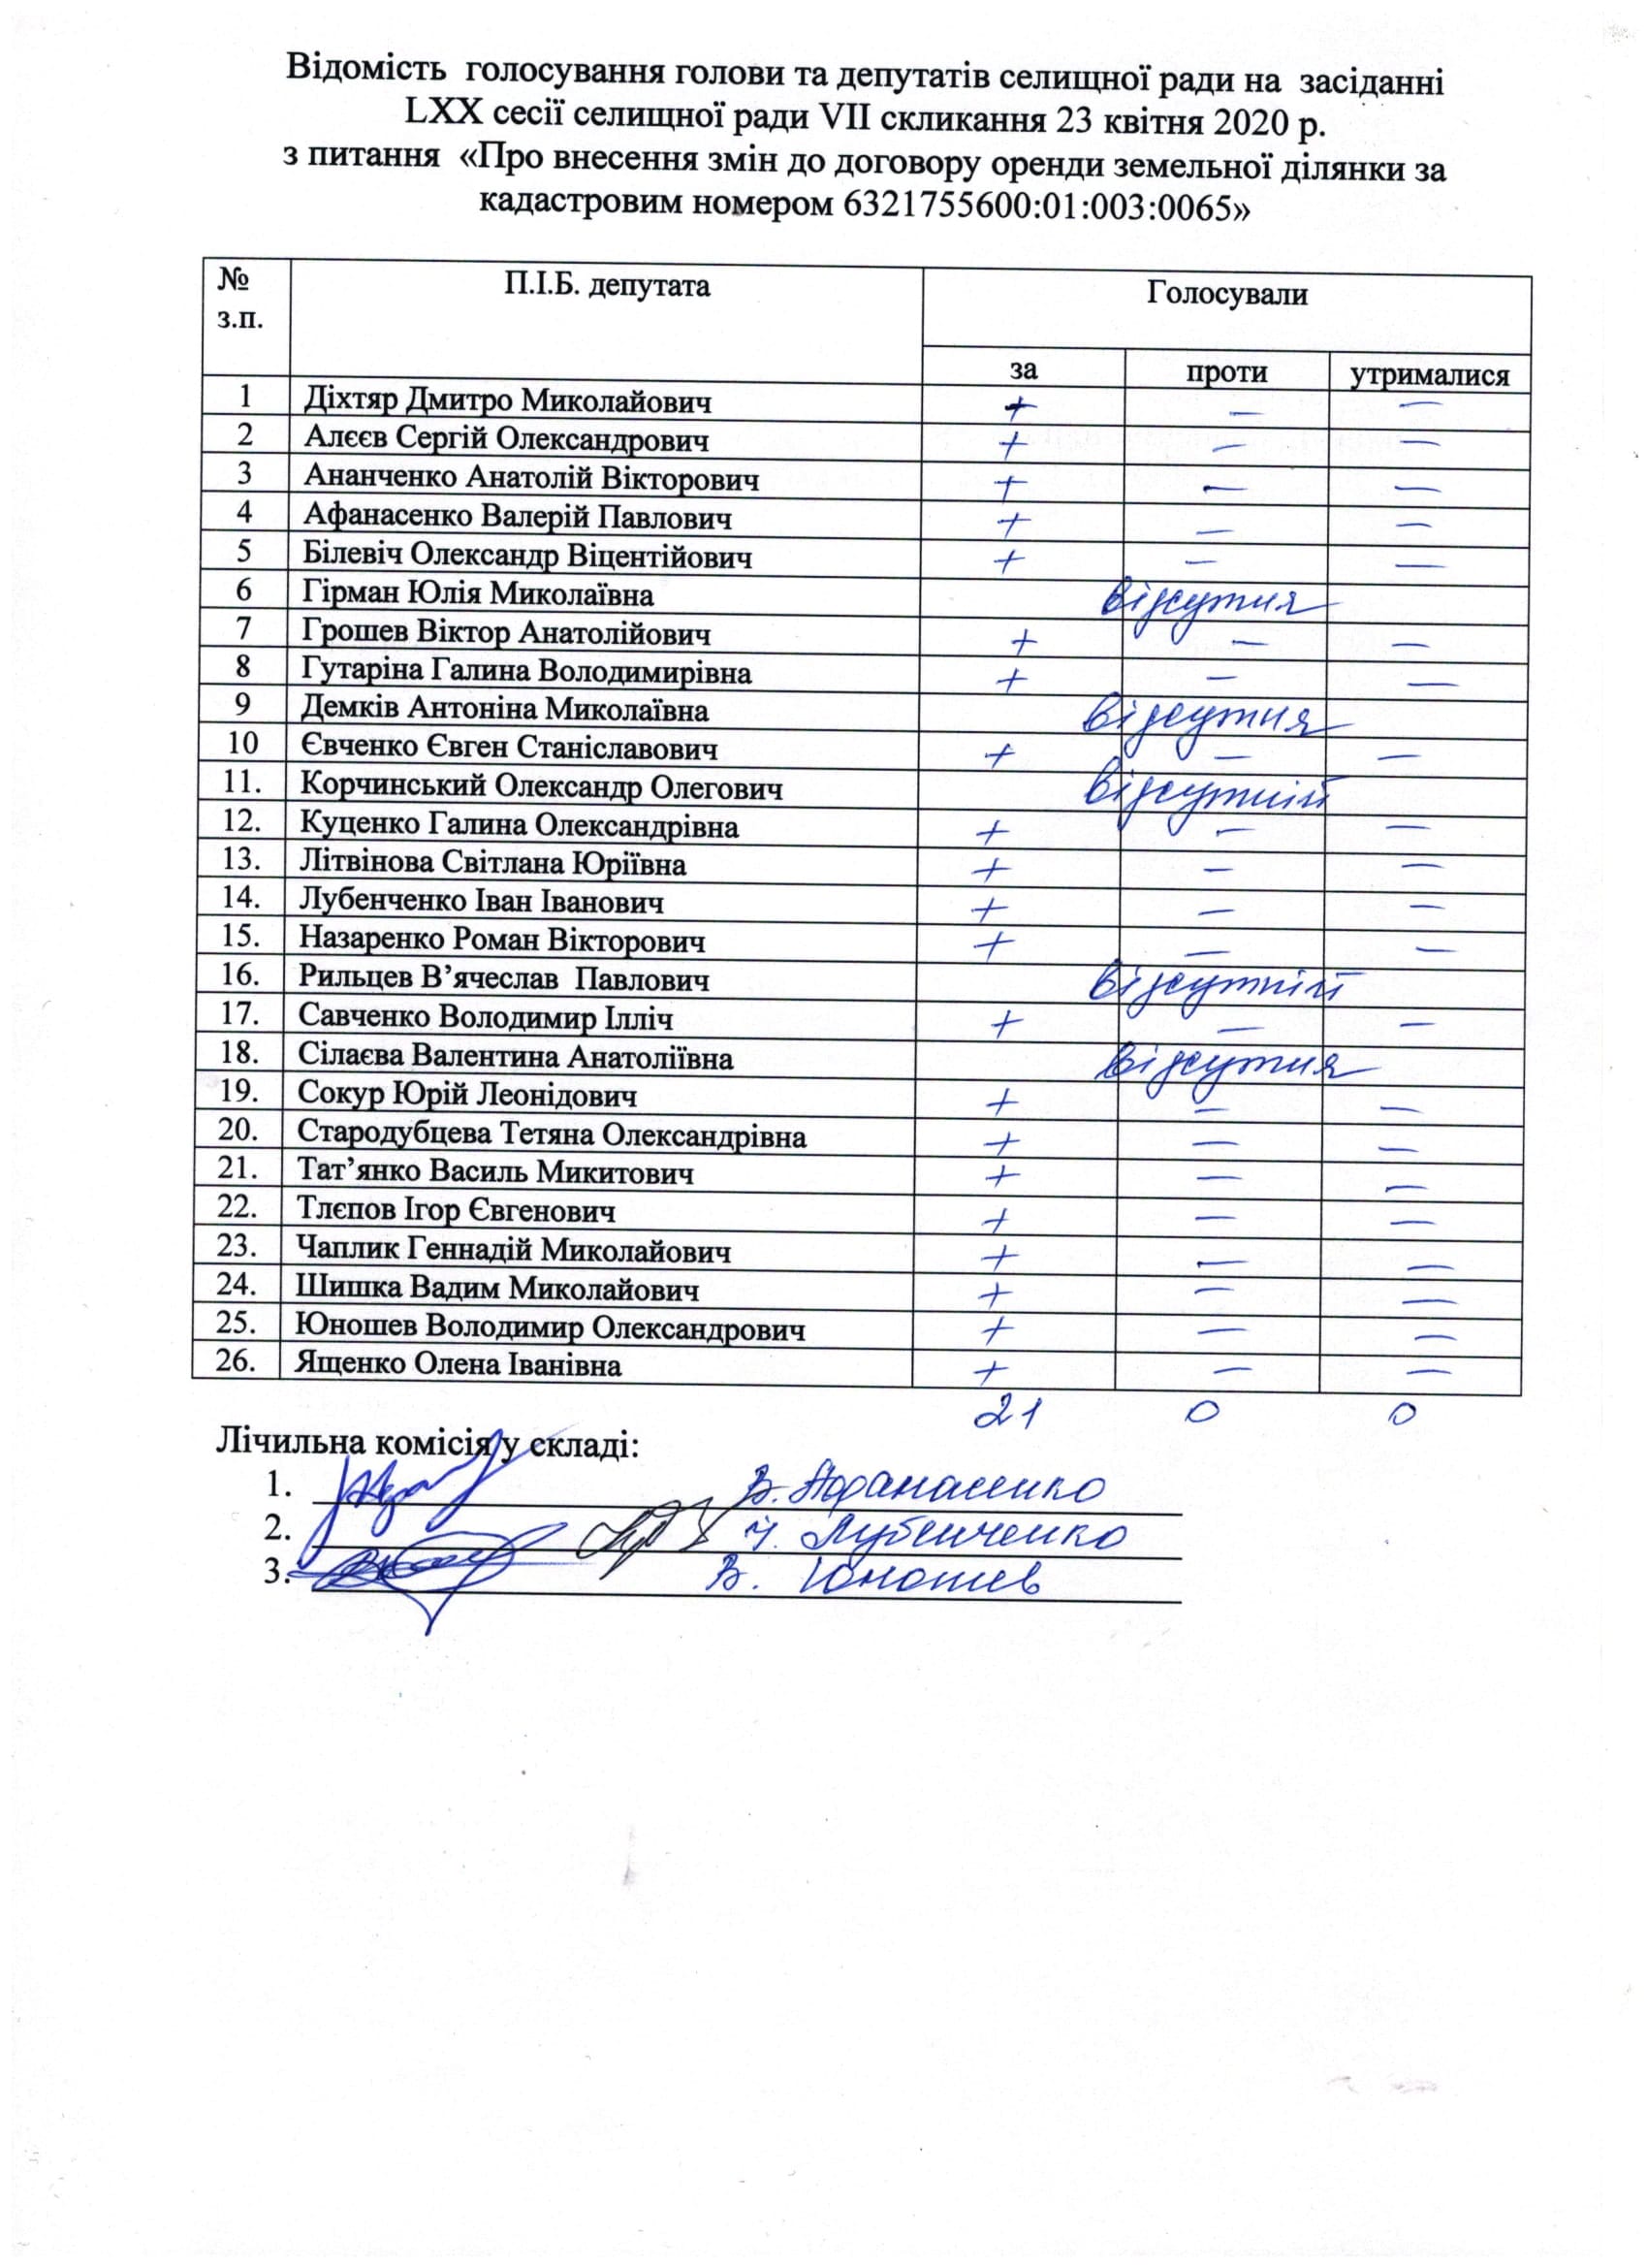 Відомість голосування голови та депутатів селищної ради на засіданні
LXX сесії селищної ради VII скликання 23 квітня 2020 р.
з питання «Про внесення змін до договору оренди земельної ділянки за
кадастровим номером 6321755600:01:003:0065»
№ з.п. П.І.Б. депутата Голосували
за проти утрималися
1 Діхтяр Дмитро Миколайович + — —
2 Алєєв Сергій Олександрович + — —
3 Ананченко Анатолій Вікторович + — —
4 Афанасенко Валерій Павлович + — —
5 Білевіч Олександр Віцентійович + — —
6 Гірман Юлія Миколаївна відсутня
7 Грошев Віктор Анатолійович + — —
8 Гутаріна Галина Володимирівна + — —
9 Демків Антоніна Миколаївна відсутня
10 Євченко Євген Станіславович + — —
11. Корчинський Олександр Олегович відсутній
12. Куценко Галина Олександрівна + — —
13. Літвінова Світлана Юріївна + — —
14. Лубенченко Іван Іванович + — —
15. Назаренко Роман Вікторович + — —
16. Рильцев В’ячеслав Павлович відсутній
17. Савченко Володимир Ілліч + — —
18. Сілаєва Валентина Анатоліївна відсутня
19. Сокур Юрій Леонідович + — —
20. Стародубцева Тетяна Олександрівна + — —
21. Тат’янко Василь Микитович + — —
22. Тлєпов Ігор Євгенович + — —
23. Чаплик Геннадій Миколайович + — —
24. Шишка Вадим Миколайович + — —
25. Юношев Володимир Олександрович + — —
26. Ященко Олена Іванівна + — —
21 0 0
Лічильна комісія у складі:
1. В. Афанасенко
2. І. Лубенченко
3. В. Юношев